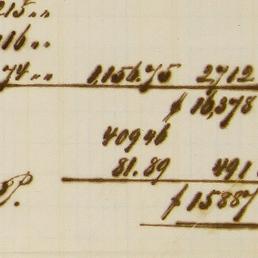 215 „
416 „
74 „ 1,156.75 2,712
$ 16,378
409 46
81.89 491
P. $ 15887